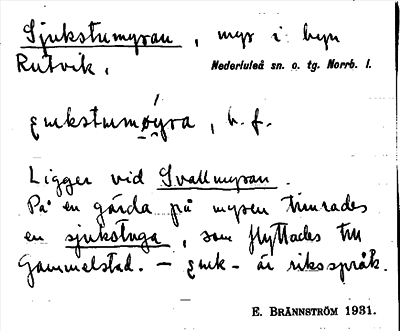 Sjukstumyran, myr i byn
Rutvik.
Nederluleå sn. o. tg. Norrb. l.
ʂukstumøyra, b. f.
Ligger vid Svallmyran.
På en gårda på myren timrades
en sjukstuga, som flyttades till
Gammelstad. — ʂuk- är riksspråk.
E. BRÄNNSTRÖM 1931.